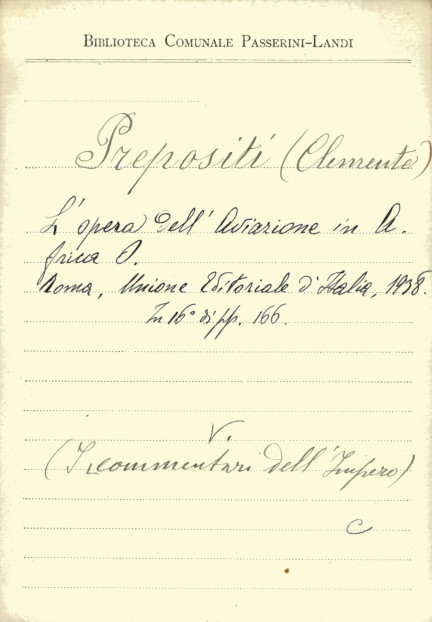 BIBLIOTECA COMUNALE PASSERINI-LANDI
Prepositi (Clemente)
L'opera dell'Aviazione in A-
frica O.
Roma, Unione Editoriale d'Italia, 1938.
In 16° di pp. 166.
V.
(I commentari dell'Impero)
C